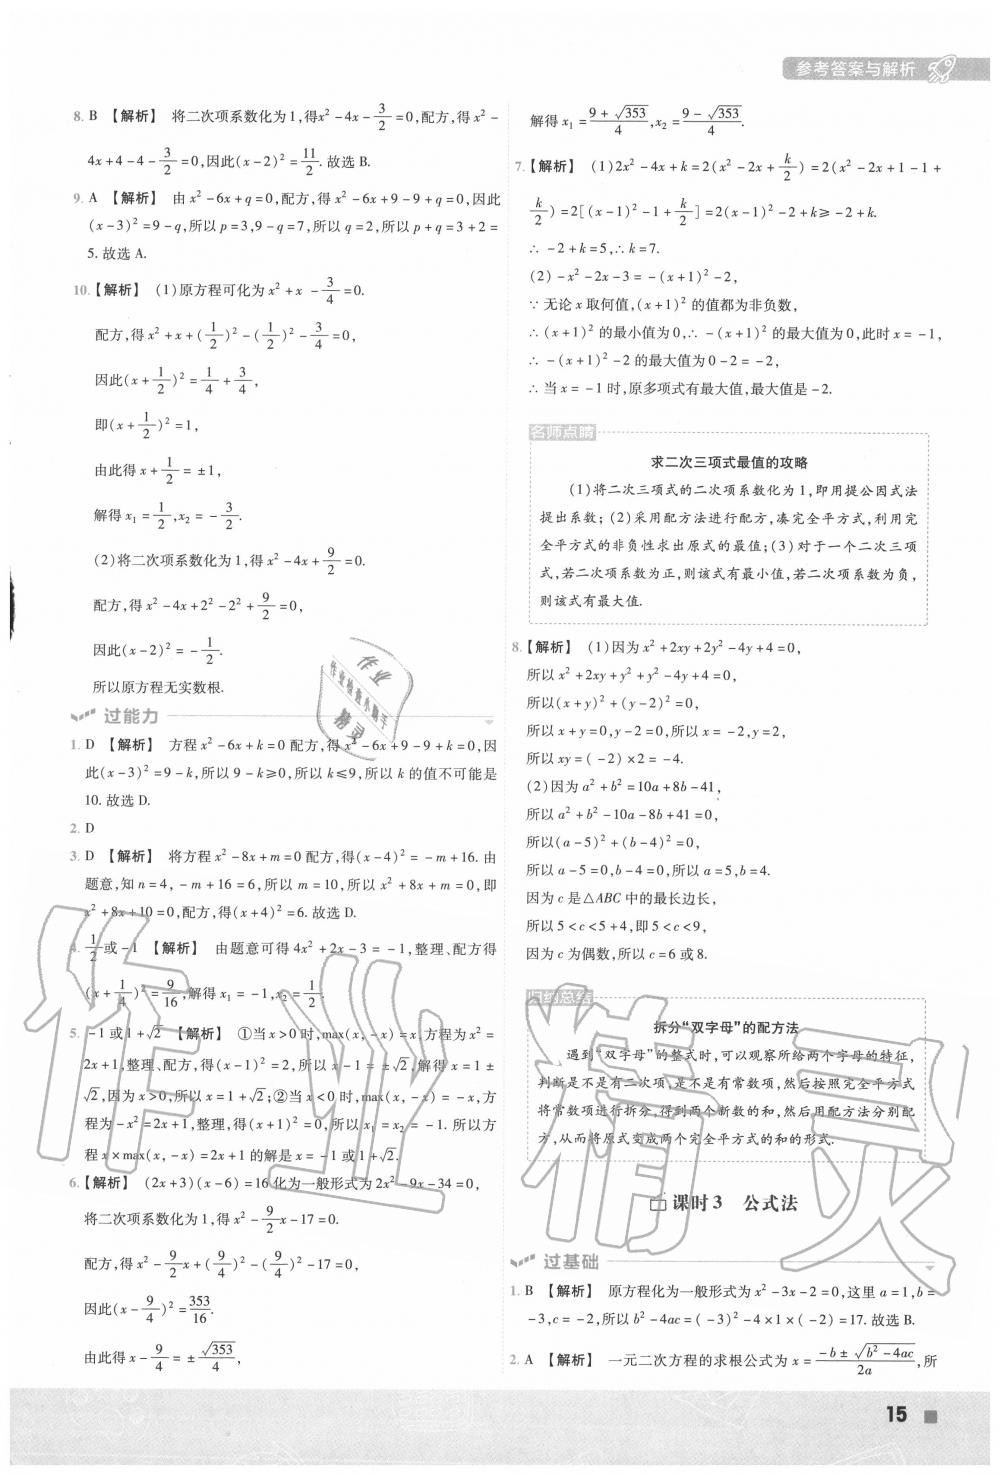 参考答案与解析
8. B 【解析】 将二次项系数化为1,得x²-4x-3/2=0,配方,得x²-
4x+4-4-3/2=0,因此(x-2)²=11/2. 故选B.
9. A 【解析】 由x²-6x+q=0,配方,得x²-6x+9-9+q=0,因此
(x-3)²=9-q,所以p=3,9-q=7,所以q=2,所以p+q=3+2=
5. 故选A.
10.【解析】 (1)原方程可化为x²+x-3/4=0.
配方,得x²+x+(1/2)²-(1/2)²-3/4=0,
因此(x+1/2)²=1/4+3/4,
即(x+1/2)²=1,
由此得x+1/2=±1,
解得x₁=1/2,x₂=-3/2.
(2)将二次项系数化为1,得x²-4x+9/2=0.
配方,得x²-4x+2²-2²+9/2=0,
因此(x-2)²=-1/2.
所以原方程无实数根.
过能力
1. D 【解析】 方程x²-6x+k=0配方,得x²-6x+9-9+k=0,因
此(x-3)²=9-k,所以9-k≥0,所以k≤9,所以k的值不可能是
10. 故选D.
2. D
3. D 【解析】 将方程x²-8x+m=0配方,得(x-4)²=-m+16. 由
题意,知n=4,-m+16=6,所以m=10,所以x²+8x+m=0,即
x²+8x+10=0,配方,得(x+4)²=6. 故选D.
4. 1/2或-1 【解析】 由题意可得4x²+2x-3=-1,整理、配方得
(x+1/4)²=9/16,解得x₁=-1,x₂=1/2.
5. -1或1+√2 【解析】 ①当x>0时,max(x,-x)=x,方程为x²=
2x+1,整理、配方,得(x-1)²=2,所以x-1=±√2,解得x=1±
√2,因为x>0,所以x=1+√2;②当x<0时,max(x,-x)=-x,方
程为-x²=2x+1,整理,得(x+1)²=0,所以x₁=x₂=-1. 所以方
程x×max(x,-x)=2x+1的解是x=-1或1+√2.
6.【解析】 (2x+3)(x-6)=16化为一般形式为2x²-9x-34=0,
将二次项系数化为1,得x²-9/2x-17=0.
配方,得x²-9/2x+(9/4)²-(9/4)²-17=0,
因此(x-9/4)²=353/16.
由此得x-9/4=±√353/4,
解得x₁=(9+√353)/4,x₂=(9-√353)/4.
7.【解析】 (1)2x²-4x+k=2(x²-2x+k/2)=2(x²-2x+1-1+
k/2)=2[(x-1)²-1+k/2]=2(x-1)²-2+k≥-2+k.
∴-2+k=5,∴k=7.
(2)-x²-2x-3=-(x+1)²-2,
∵无论x取何值,(x+1)²的值都为非负数,
∴(x+1)²的最小值为0,∴-(x+1)²的最大值为0,此时x=-1,
∴-(x+1)²-2的最大值为0-2=-2,
∴当x=-1时,原多项式有最大值,最大值是-2.
名师点睛
求二次三项式最值的攻略
(1)将二次三项式的二次项系数化为1,即用提公因式法
提出系数;(2)采用配方法进行配方,凑完全平方式,利用完
全平方式的非负性求出原式的最值;(3)对于一个二次三项
式,若二次项系数为正,则该式有最小值,若二次项系数为负,
则该式有最大值.
8.【解析】 (1)因为x²+2xy+2y²-4y+4=0,
所以x²+2xy+y²+y²-4y+4=0,
所以(x+y)²+(y-2)²=0,
所以x+y=0,y-2=0,所以x=-2,y=2,
所以xy=(-2)×2=-4.
(2)因为a²+b²=10a+8b-41,
所以a²+b²-10a-8b+41=0,
所以(a-5)²+(b-4)²=0,
所以a-5=0,b-4=0,所以a=5,b=4.
因为c是△ABC中的最长边长,
所以5<c<5+4,即5<c<9,
因为c为偶数,所以c=6或8.
归纳总结
拆分“双字母”的配方法
遇到“双字母”的整式时,可以观察所给两个字母的特征,
判断是不是有二次项、是不是有常数项,然后按照完全平方式
将常数项进行拆分,得到两个新数的和,然后用配方法分别配
方,从而将原式变成两个完全平方式的和的形式.
课时3 公式法
过基础
1. B 【解析】 原方程化为一般形式为x²-3x-2=0,这里a=1,b=
-3,c=-2,所以b²-4ac=(-3)²-4×1×(-2)=17. 故选B.
2. A 【解析】 一元二次方程的求根公式为x=(-b±√(b²-4ac))/2a,所
15
作业
作业检查小助手
精灵
作业精灵